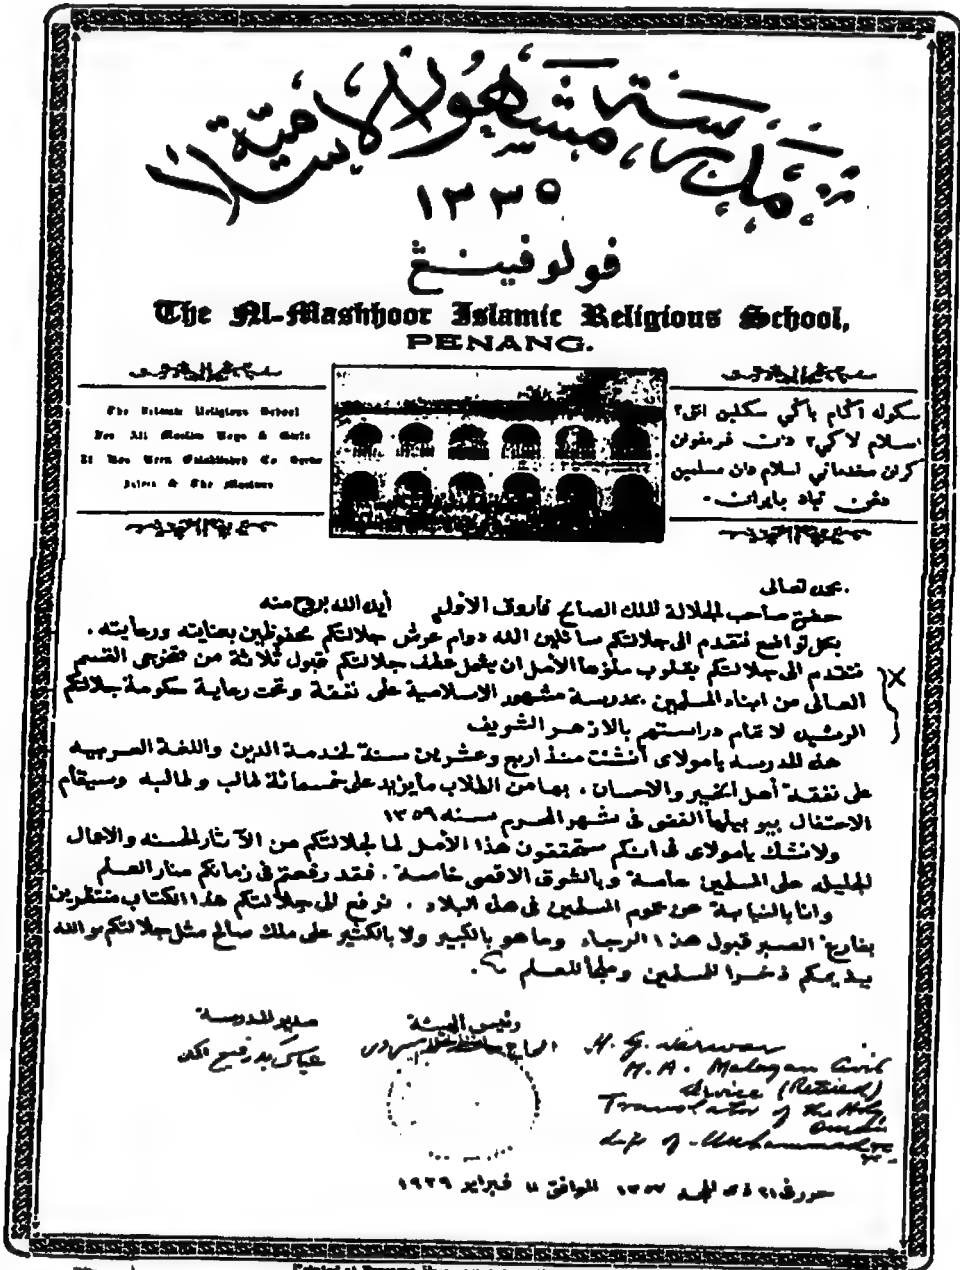 مدرسة مشهور الاسلامية
١٣٣٥
فولو فينڠ
The Al-Mashhoor Islamic Religious School,
PENANG.
The Islamic Religious School
For All Moslem Boys & Girls
It Has Been Established To Serve
Islam & The Moslems
سكوله اڬام باڬي سكلين انق٢
اسلام لاكي٢ دان فرمفوان
كران خدماتي اسلام دان مسلمين
دڠن تياد بايران.
بحمده تعالى
حضرة صاحب الجلالة الملك الصالح فاروق الاول أيده الله بروح منه
بكل تواضع نتقدم الى جلالتكم سائلين الله دوام عرش جلالتكم محفوظين بعنايته ورعايته.
نتقدم الى جلالتكم بقلوب ملؤها الأمل ان يشمل عطف جلالتكم قبول ثلاثة من متخرجى القسم
العالى من ابناء المسلمين بمدرسة مشهور الاسلامية على نفقة وتحت رعاية حكومة جلالتكم
الرشيده لاتمام دراستهم بالازهر الشريف
هذه المدرسه يامولاى أنشئت منذ اربع وعشرين سنة لخدمة الدين واللغة العربيه
على نفقة أهل الخير والاحسان. بها من الطلاب مايزيد على خمسمائة طالب وطالبه وسيقام
الاحتفال بيوبيلها الفضى فى شهر المحرم سنه ١٣٥٩
ولانشك يامولاى فى انكم ستحققون هذا الأمل لما لجلالتكم من الآثار الحسنه والاعمال
الجليله على المسلمين عامة وبالشرق الاقصى خاصة. فقد رفعتم فى زمانكم منار العلم
وانا بالنيابة عن عموم المسلمين فى هذه البلاد. نرفع الى جلالتكم هذا الكتاب منتظرين
بفارغ الصبر قبول هذا الرجاء وما هو بالكبير ولا بالكثير على ملك صالح مثل جلالتكم والله
يديمكم ذخرا للمسلمين وملجأ للعلم
رئيس الهيئة
مدير المدرسة
الحاج
H. G. Sarwar
M.A. Malayan Civil
Service (Retired)
Translator of the Holy
Quran
Life of Muhammad etc
حرر فى ٢١ ذى الحجه ١٣٥٧ الموافق ١١ فبراير ١٩٣٩
Printed at